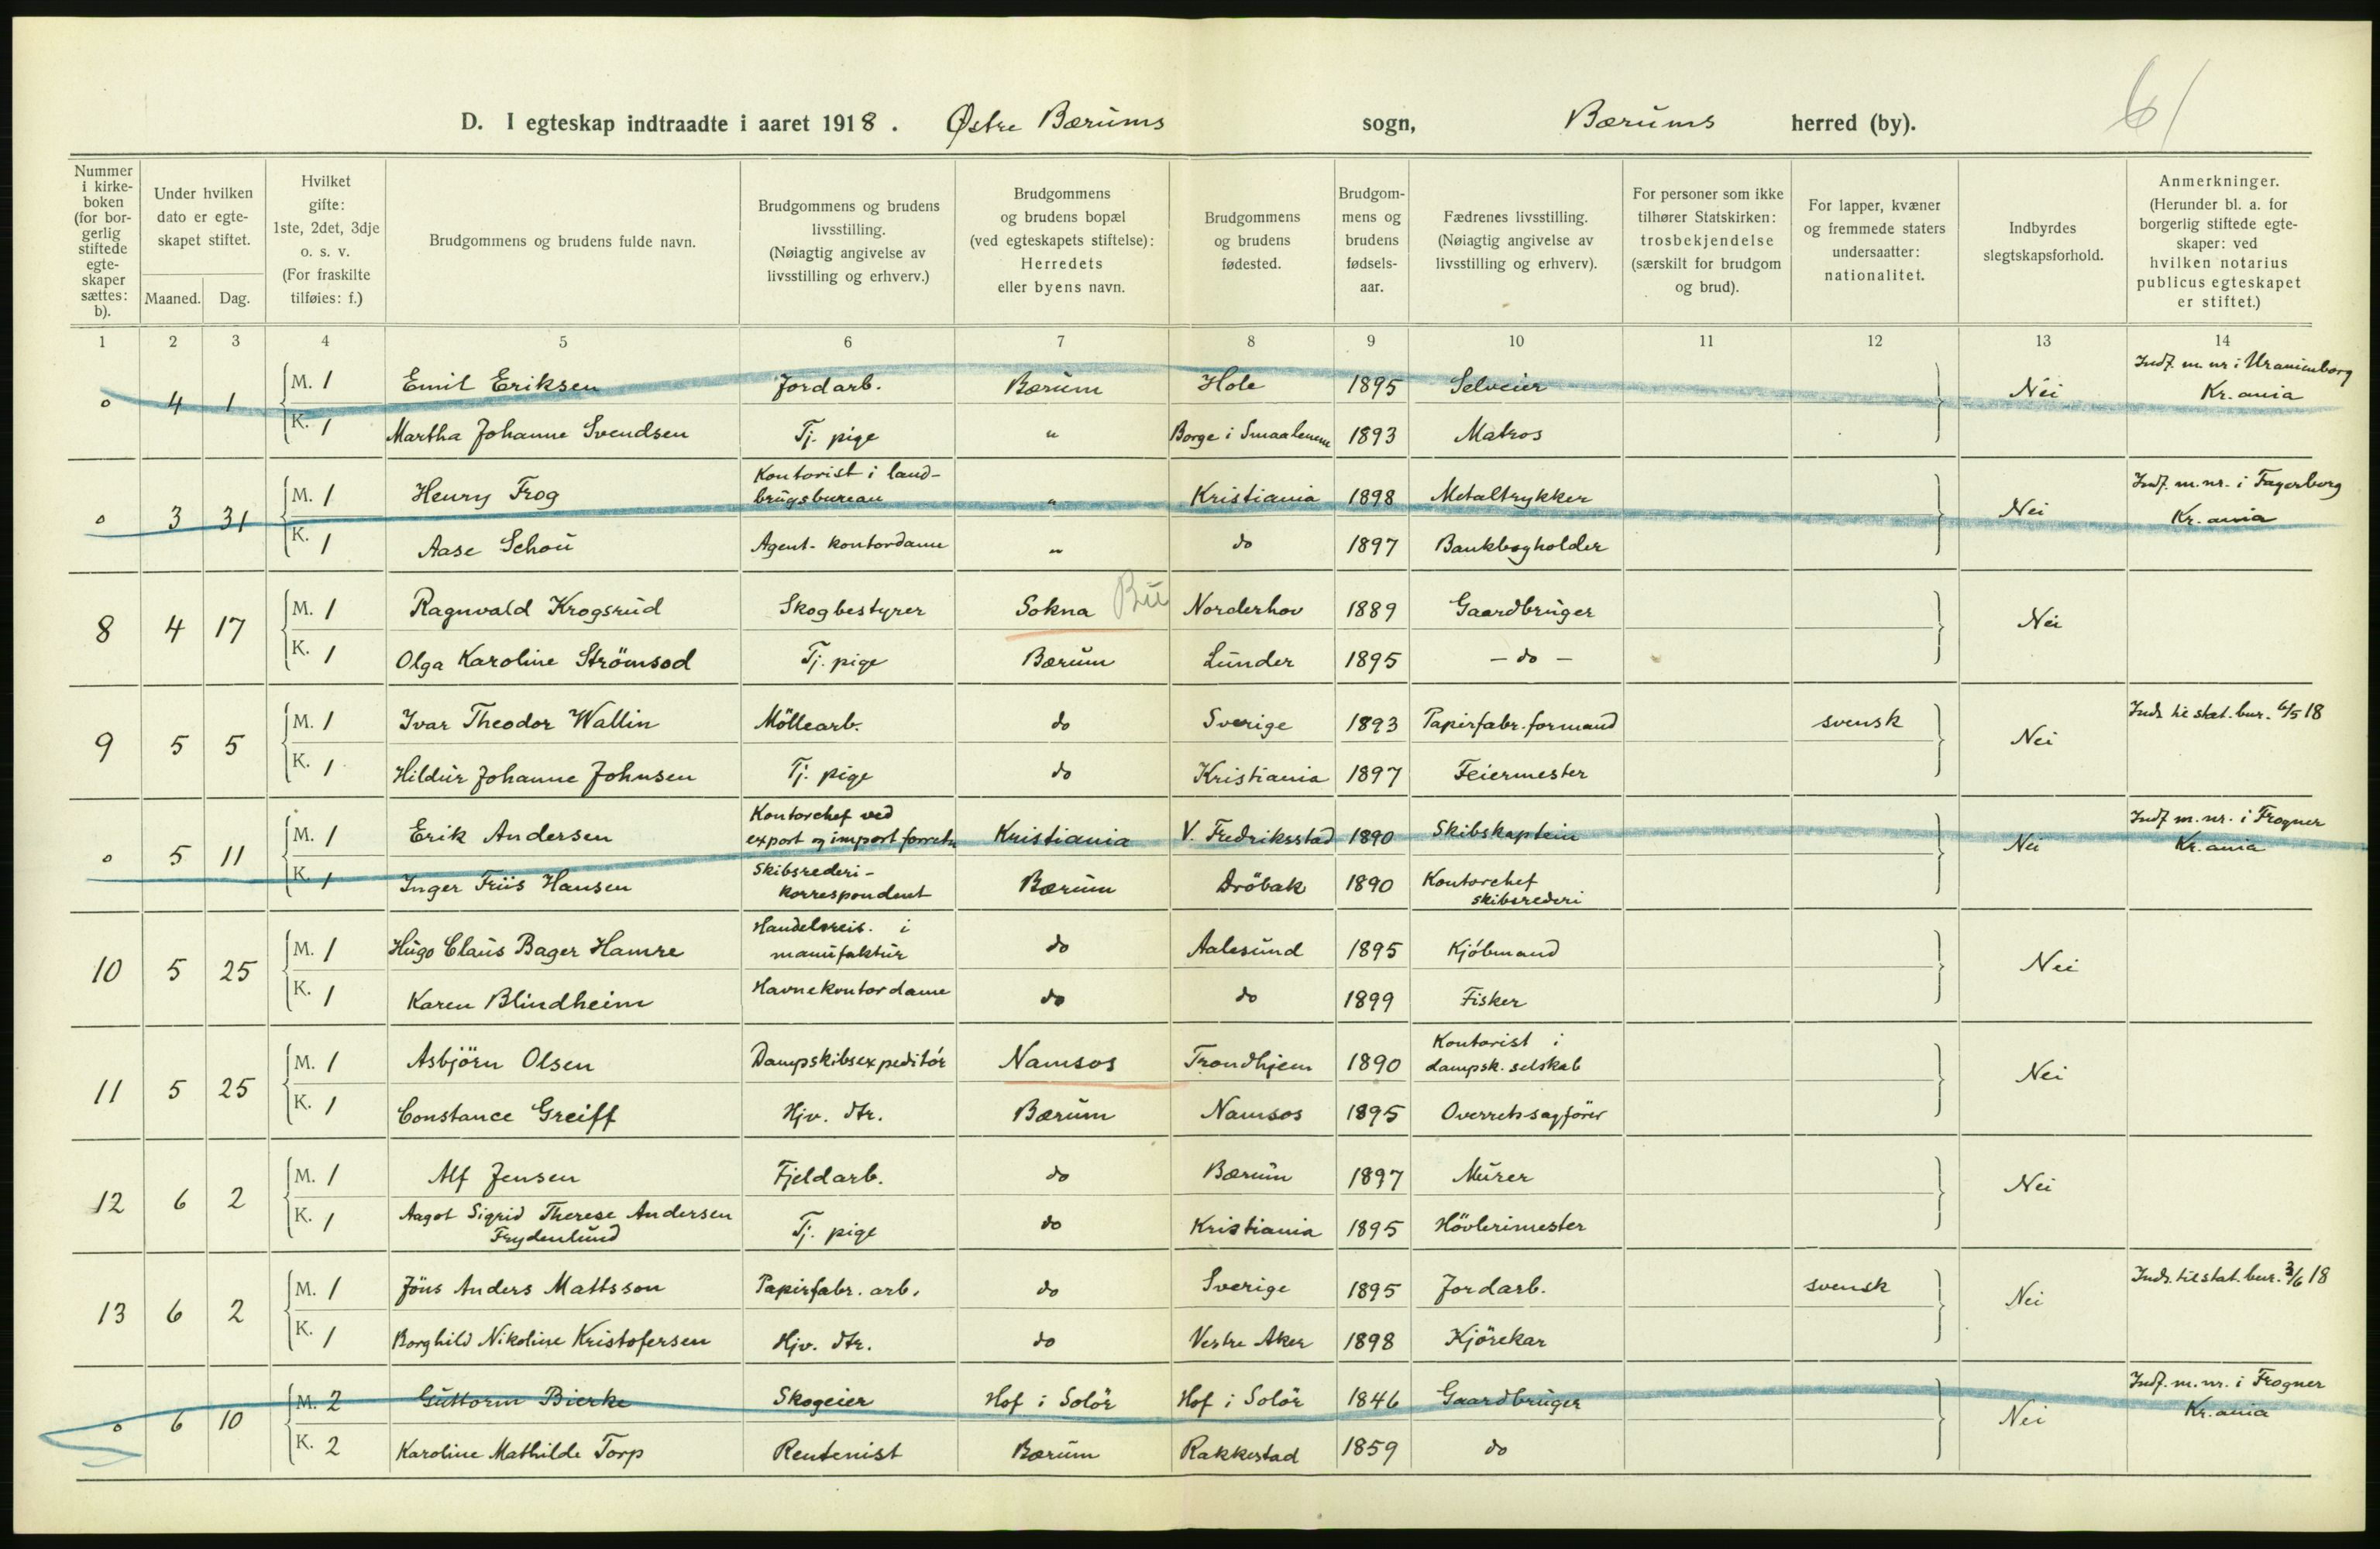 61
D. I egteskap indtraadte i aaret 1918. Østre Bærums sogn, Bærums herred (by).
Nummer i kirke-boken (for bor-gerlig stiftede egte-skaper sættes: b).
Under hvilken dato er egte-skapet stiftet.
Maaned. Dag.
Hvilket gifte: 1ste, 2det, 3dje o. s. v. (For fraskilte tilføies: f.)
Brudgommens og brudens fulde navn.
Brudgommens og brudens livsstilling. (Nøiagtig angivelse av livsstilling og erhverv.)
Brudgommens og brudens bopæl (ved egteskapets stiftelse): Herredets eller byens navn.
Brudgommens og brudens fødested.
Brudgom-mens og brudens fødsels-aar.
Fædrenes livsstilling. (Nøiagtig angivelse av livsstilling og erhverv).
For personer som ikke tilhører Statskirken: trosbekjendelse (særskilt for brudgom og brud).
For lapper, kvæner og fremmede staters undersaatter: nationalitet.
Indbyrdes slegtskapsforhold.
Anmerkninger. (Herunder bl. a. for borgerlig stiftede egte-skaper: ved hvilken notarius publicus egteskapet er stiftet.)
1 2 3 4 5 6 7 8 9 10 11 12 13 14
o 4 1 M. 1 Emil Eriksen Jordarb. Bærum Hole 1895 Selveier Nei Indf. m. nr i Uranienborg Kr.ania
K. 1 Martha Johanne Svendsen Tj. pige " Borge i Smaalenene 1893 Matros
o 3 31 M. 1 Henry Frog Kontorist i land-brugsbureau " Kristiania 1898 Metaltrykker Nei Indf. m. nr. i Fagerborg Kr.ania
K. 1 Aase Schou Agent-kontordame " do 1897 Bankbogholder
8 4 17 M. 1 Ragnvald Krogsrud Skogbestyrer Sokna Bu Norderhov 1889 Gaardbruger Nei
K. 1 Olga Karoline Strömsod Tj. pige Bærum Lunder 1895 - do -
9 5 5 M. 1 Ivar Theodor Wallin Möllearb. do Sverige 1893 Papirfabr. formand svensk Nei Inds. til stat. bur. 6/5 18
K. 1 Hildur Johanne Johnsen Tj. pige do Kristiania 1897 Feiermester
o 5 11 M. 1 Erik Andersen Kontorchef ved export og import forretn Kristiania V. Fredriksstad 1890 Skibskaptein Nei Indf m. nr. i Frogner Kr.ania
K. 1 Inger Friis Hansen Skibsrederi-korrespondent Bærum Dröbak 1890 Kontorchef skibsrederi
10 5 25 M. 1 Hugo Claus Bager Hamre Handelsreis. i manufaktur do Aalesund 1895 Kjöbmand Nei
K. 1 Karen Blindheim Havnekontordame do do 1899 Fisker
11 5 25 M. 1 Asbjörn Olsen Dampskibsexpeditör Namsos Trondhjem 1890 Kontorist i dampsk. selskab Nei
K. 1 Constance Greiff Hjv. dtr. Bærum Namsos 1895 Overretssagförer
12 6 2 M. 1 Alf Jensen Fjeldarb. do Bærum 1897 Murer Nei
K. 1 Aagot Sigrid Therese Andersen Frydenlund Tj. pige do Kristiania 1895 Hövlerimester
13 6 2 M. 1 Jöns Anders Mattsson Papirfabr. arb. do Sverige 1895 Jordarb. svensk Nei Inds. til stat. bur. 3/6 18
K. 1 Borghild Nikoline Kristofersen Hjv. dtr. do Vestre Aker 1898 Kjörekar
o 6 10 M. 2 Guttorm Bierke Skogeier Hof i Solör Hof i Solör 1846 Gaardbruger Nei Indf. m. nr. i Frogner Kr.ania
K. 2 Karoline Mathilde Torp Rentenist Bærum Rakkestad 1859 do